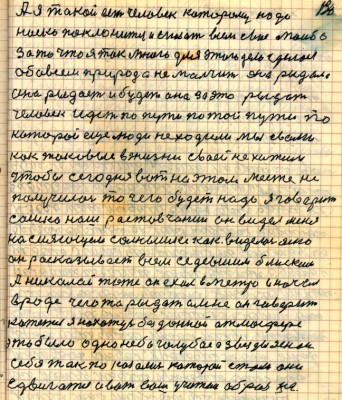 А я такой вот человек которому надо
низко поклонится и сказать всем свое спасибо
за то что я так много для этого дела сделал
обо всем природа не молчит она рыдала
она рыдает и будет она за это рыдат
человек идет по пути по той пути по
которой еще люди не ходили мы с вами
как таковые в жизни своей не хотим
чтобы сегодня вот на этом месте не
получилося то чего будет надо я говорит
само наш растовчанин он видел меня
на сияющем солнышке как виделся ясно
он рассказывает всем сидевшим близким
А николай тоже он ехал в метро и начал
вроде чего та рыдат а мне он говорит
хотели я нахожус бездонной атмосфере
это было одно небо голубое а звезды ясно
себя так показали которой стали они
сдвигатся а вот ваш учителя образ же.
190